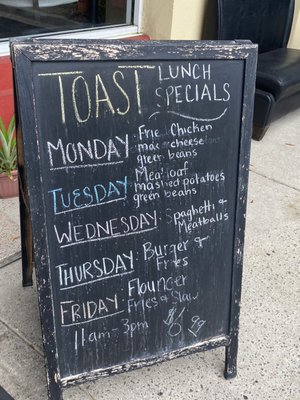 TOAST LUNCH SPECIALS
MONDAY: Fried Chicken
mac & cheese
green beans
TUESDAY: Meatloaf
mashed potatoes
green beans
WEDNESDAY: Spaghetti &
Meatballs
THURSDAY: Burger &
Fries
FRIDAY: Flounder
Fries & Slaw
11am-3pm